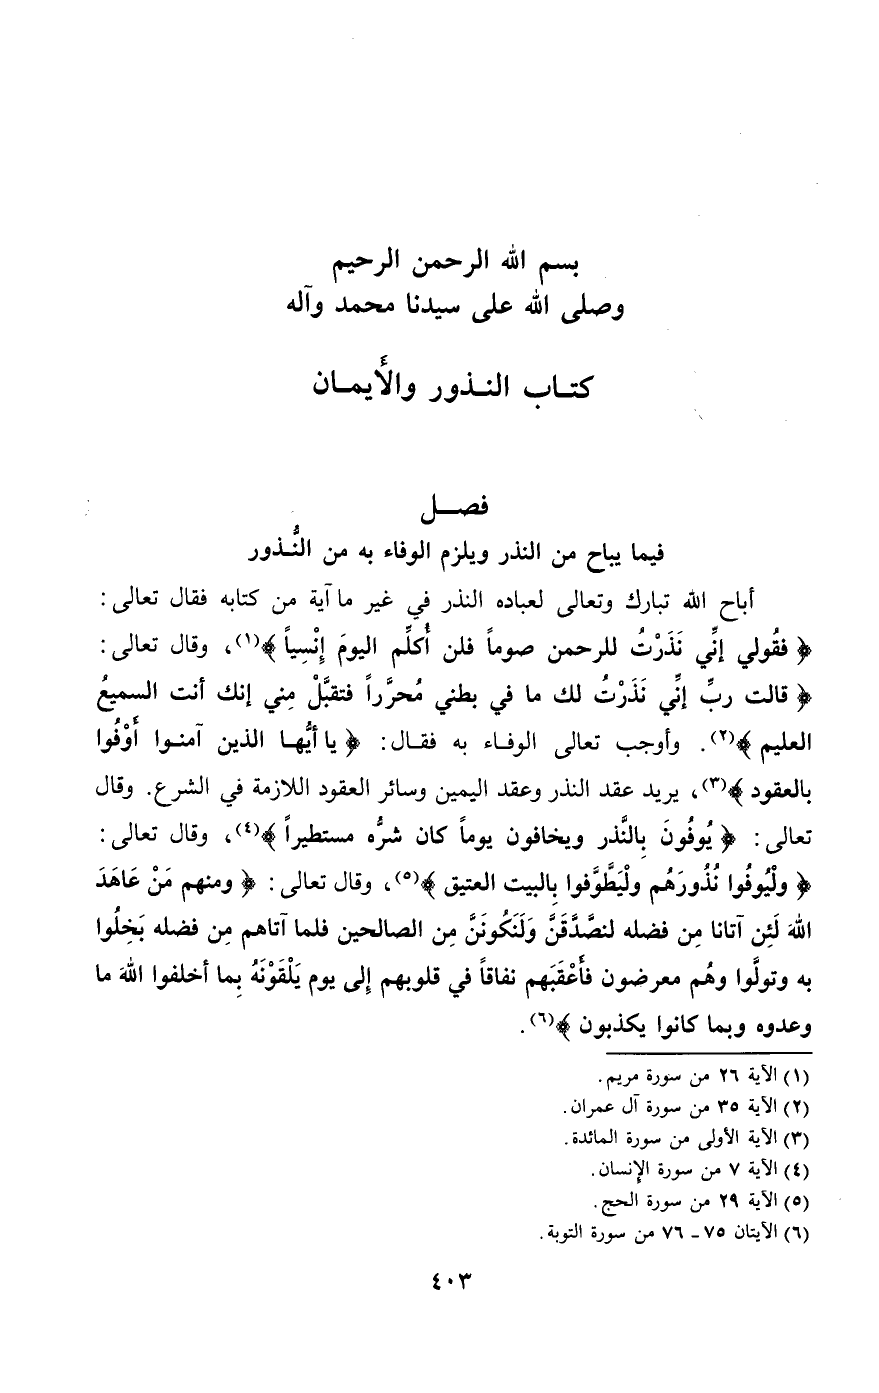 بسم الله الرحمن الرحيم
وصلى الله على سيدنا محمد وآله
كتـاب النـذور والأَيمـان
فصــل
فيما يباح من النذر ويلزم الوفاء به من النُّـذور
أباح الله تبارك وتعالى لعباده النذر في غير ما آية من كتابه فقال تعالى:
﴿ فقُولي إنِّي نَذَرْتُ للرحمن صوماً فلن أُكلِّم اليومَ إنْسِياً ﴾(١)، وقال تعالى:
﴿ قالت ربِّ إنِّي نَذَرْتُ لك ما في بطني مُحرَّراً فتقبَّلْ مِني إنك أنت السميعُ
العليم ﴾(٢). وأوجب تعالى الوفـاء به فقـال: ﴿ يا أيُّهـا الذين آمنـوا أَوْفُوا
بالعقود ﴾(٣)، يريد عقد النذر وعقد اليمين وسائر العقود اللازمة في الشرع. وقال
تعالى: ﴿ يُوفُونَ بِالنَّذر ويخافون يوماً كان شرُّه مستطيراً ﴾(٤)، وقال تعالى:
﴿ ولْيُوفُوا نُذُورَهُم ولْيَطَّوَّفوا بالبيت العتيق ﴾(٥)، وقال تعالى: ﴿ ومنهم مَنْ عَاهَدَ
اللهَ لَئِن آتانا مِن فضله لنصَّدَّقَنَّ وَلَنَكُونَنَّ مِن الصالحين فلما آتاهم مِن فضله بَخِلُوا
به وتولَّوا وهُم معرضون فأَعْقَبَهم نفاقاً في قلوبهم إلى يوم يَلْقَوْنَهُ بِما أخلفوا اللهَ ما
وعدوه وبما كانوا يكذبون ﴾(٦).
(١) الآية ٢٦ من سورة مريم.
(٢) الآية ٣٥ من سورة آل عمران.
(٣) الآية الأولى من سورة المائدة.
(٤) الآية ٧ من سورة الإنسان.
(٥) الآية ٢٩ من سورة الحج.
(٦) الآيتان ٧٥ - ٧٦ من سورة التوبة.
٤٠٣